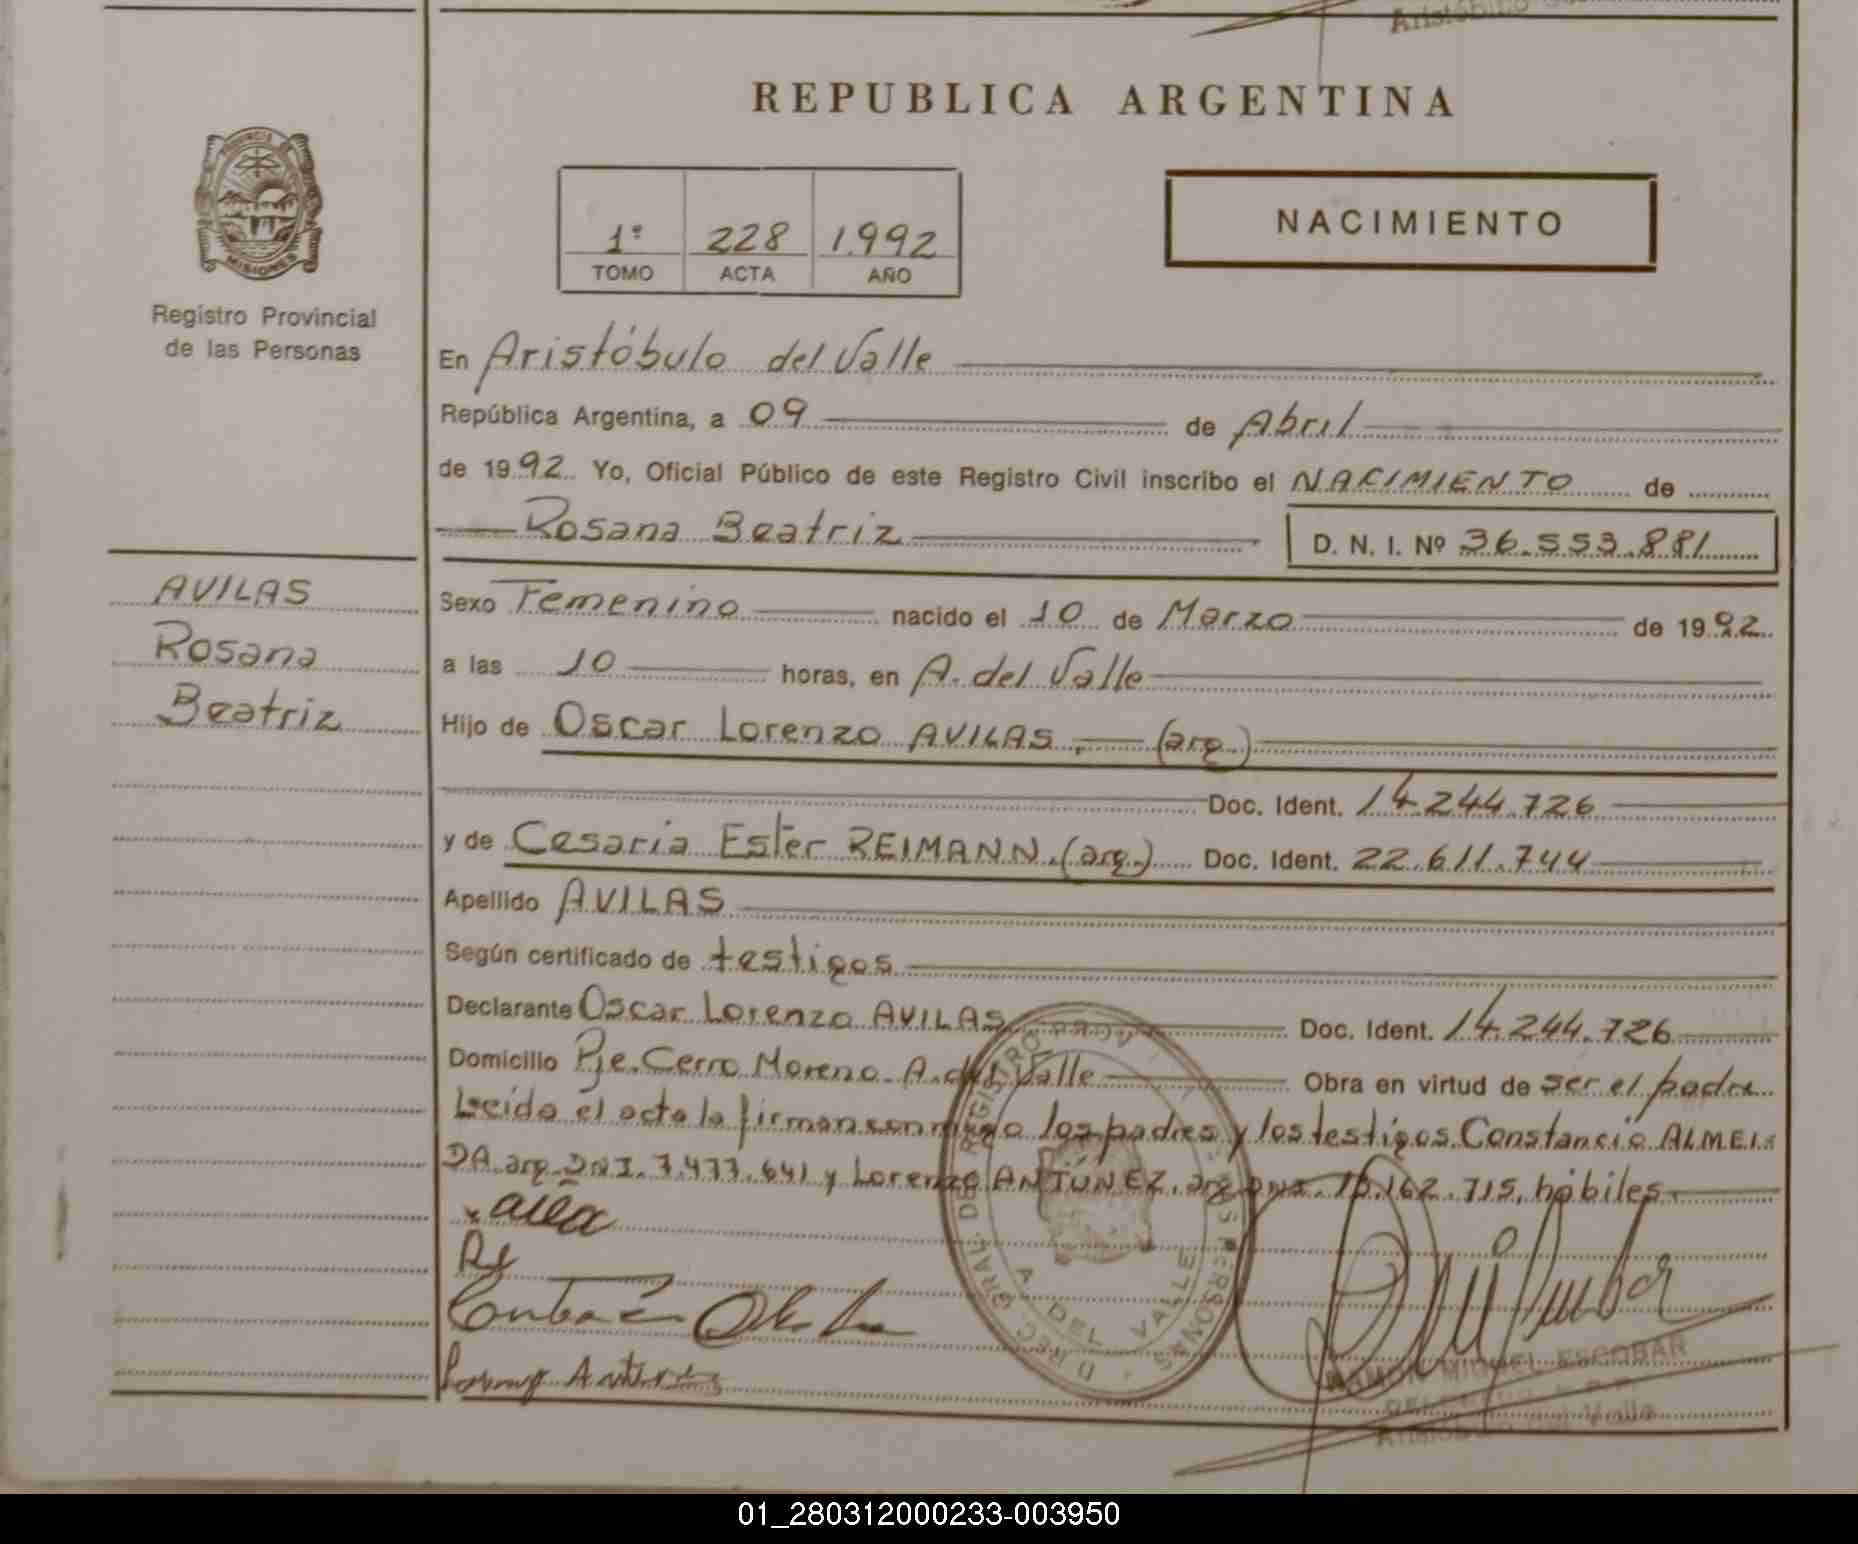 REPUBLICA ARGENTINA
PROVINCIA DE
MISIONES
Registro Provincial
de las Personas
1º 228 1.992
TOMO ACTA AÑO
NACIMIENTO
En Aristóbulo del Valle
República Argentina, a 09 de Abril
de 1992. Yo, Oficial Público de este Registro Civil inscribo el NACIMIENTO de
Rosana Beatriz
D. N. I. Nº 36.553.881
AVILAS
Rosana
Beatriz
Sexo Femenino nacido el 10 de Marzo de 1992.
a las 10 horas, en A. del Valle
Hijo de Oscar Lorenzo AVILAS.- (arg.)
Doc. Ident. 14.244.726
y de Cesaria Ester REIMANN.(arg.) Doc. Ident. 22.611.744
Apellido AVILAS
Según certificado de testigos
Declarante Oscar Lorenzo AVILAS Doc. Ident. 14.244.726
Domicilio Pje. Cerro Moreno - A. del Valle Obra en virtud de ser el padre
Leída el acta la firman conmigo los padres y los testigos Constancio ALMEI-
DA arg. DNI. 7.477.641 y Lorenzo ANTÚNEZ, arg. DNI. 162.715, hábiles.
DIREC. GRAL. DE REGISTRO PROV. PERSONAS
A. DEL VALLE
RAMON MIGUEL ESCOBAR
Aristóbulo del Valle
01_280312000233-003950